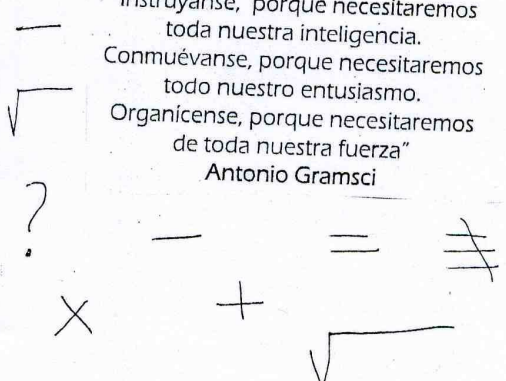 Instrúyanse, porque necesitaremos
toda nuestra inteligencia.
Conmuévanse, porque necesitaremos
todo nuestro entusiasmo.
Organícense, porque necesitaremos
de toda nuestra fuerza"
Antonio Gramsci
—
√
?
— = ≢
× +
√